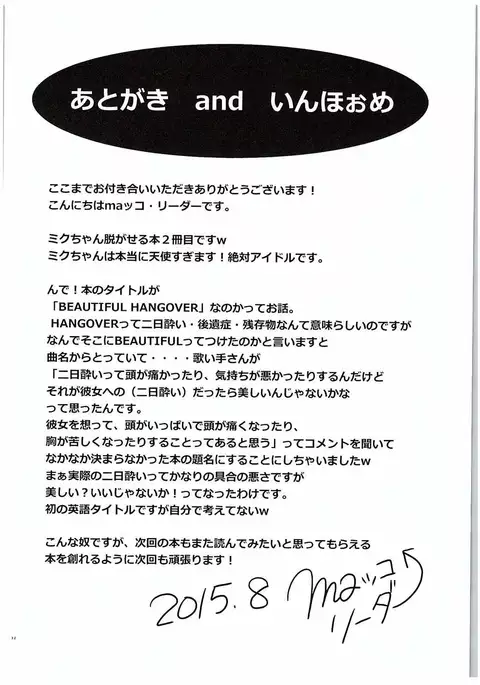 あとがき and いんほぉめ
ここまでお付き合いいただきありがとうございます！
こんにちはmaッコ・リーダーです。
ミクちゃん脱がせる本２冊目ですw
ミクちゃんは本当に天使すぎます！絶対アイドルです。
んで！本のタイトルが
「BEAUTIFUL HANGOVER」なのかってお話。
HANGOVERって二日酔い・後遺症・残存物なんて意味らしいのですが
なんでそこにBEAUTIFULってつけたのかと言いますと
曲名からとっていて・・・・歌い手さんが
「二日酔いって頭が痛かったり、気持ちが悪かったりするんだけど
それが彼女への（二日酔い）だったら美しいんじゃないかな
って思ったんです。
彼女を想って、頭がいっぱいで頭が痛くなったり、
胸が苦しくなったりすることってあると思う」ってコメントを聞いて
なかなか決まらなかった本の題名にすることにしちゃいましたw
まぁ実際の二日酔いってかなりの具合の悪さですが
美しい？いいじゃないか！ってなったわけです。
初の英語タイトルですが自分で考えてないw
こんな奴ですが、次回の本もまた読んでみたいと思ってもらえる
本を創れるように次回も頑張ります！
2015.8 maッコ
リーダー